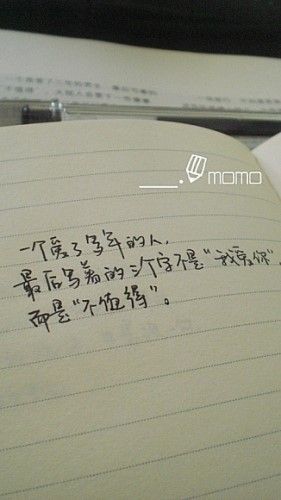 ____. momo
一个爱了多年的人,
最后写着的三个字不是“我爱你”,
而是“不值得”。